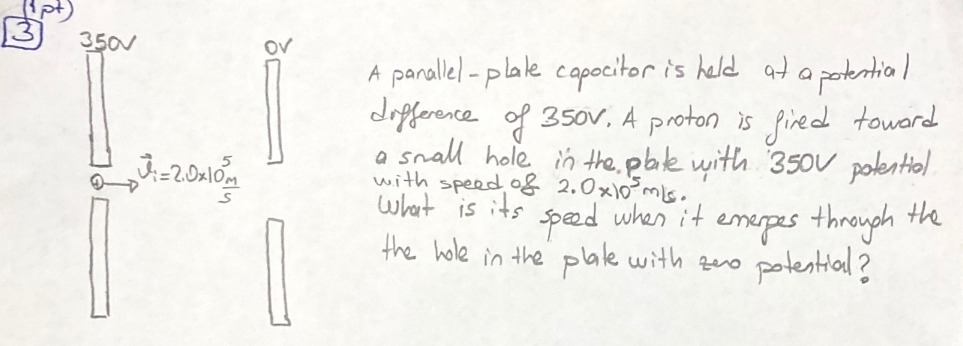 (1pt)
3
350V
0V
A parallel-plate capocitor is held at a potential
difference of 350V. A proton is fired toward
a small hole in the plate with 350V potential
with speed of 2.0x10⁵ m/s.
What is its speed when it emerges through the
the hole in the plate with zero potential?
+
v⃗i=2.0x10⁵ m/s